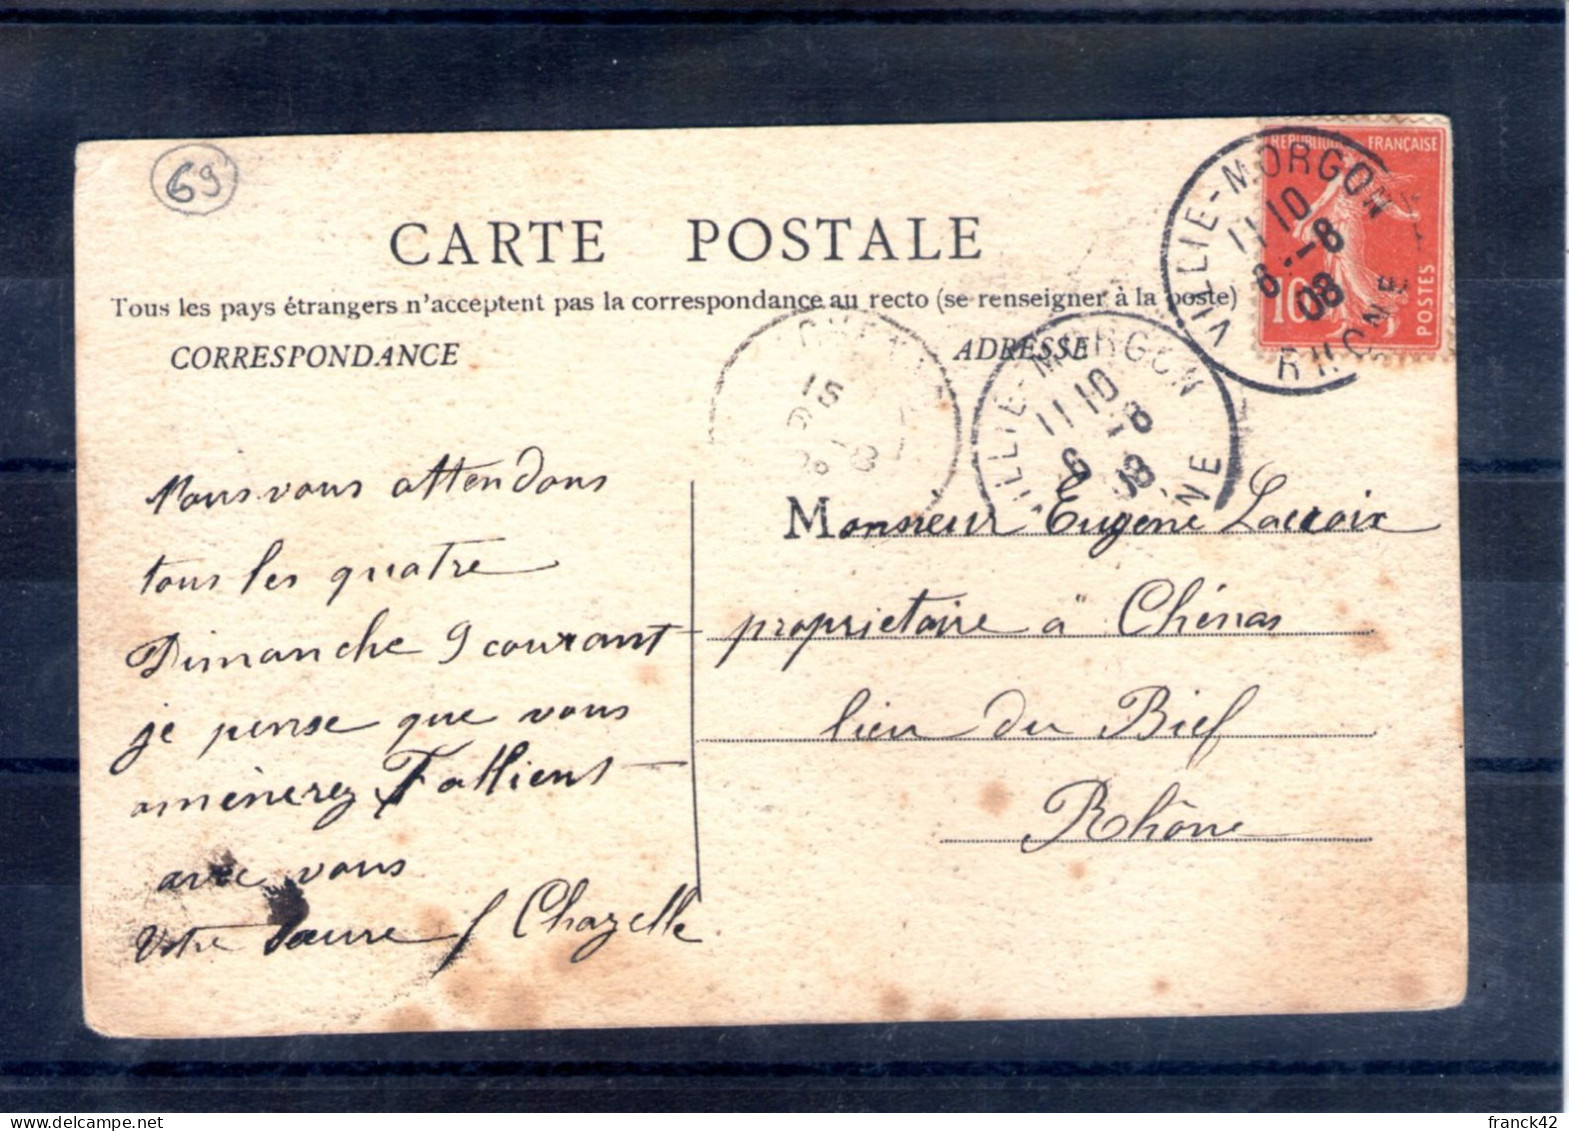 69
RÉPUBLIQUE FRANÇAISE
10
POSTES
VILLIE-MORGON
11 10
8 -8
08
RHONE
CARTE POSTALE
Tous les pays étrangers n'acceptent pas la correspondance au recto (se renseigner à la poste)
CORRESPONDANCE
ADRESSE
15
VILLIE-MORGON
11 10
8
08
NE
Nous vous attendons
tous les quatre
Dimanche 9 courant
je pense que vous
amènerez Tattient
avec vous
Votre J Chazelle
Monsieur Eugène Lacroix
proprietaire à Chénas
lieu du Bief
Rhône
franck42